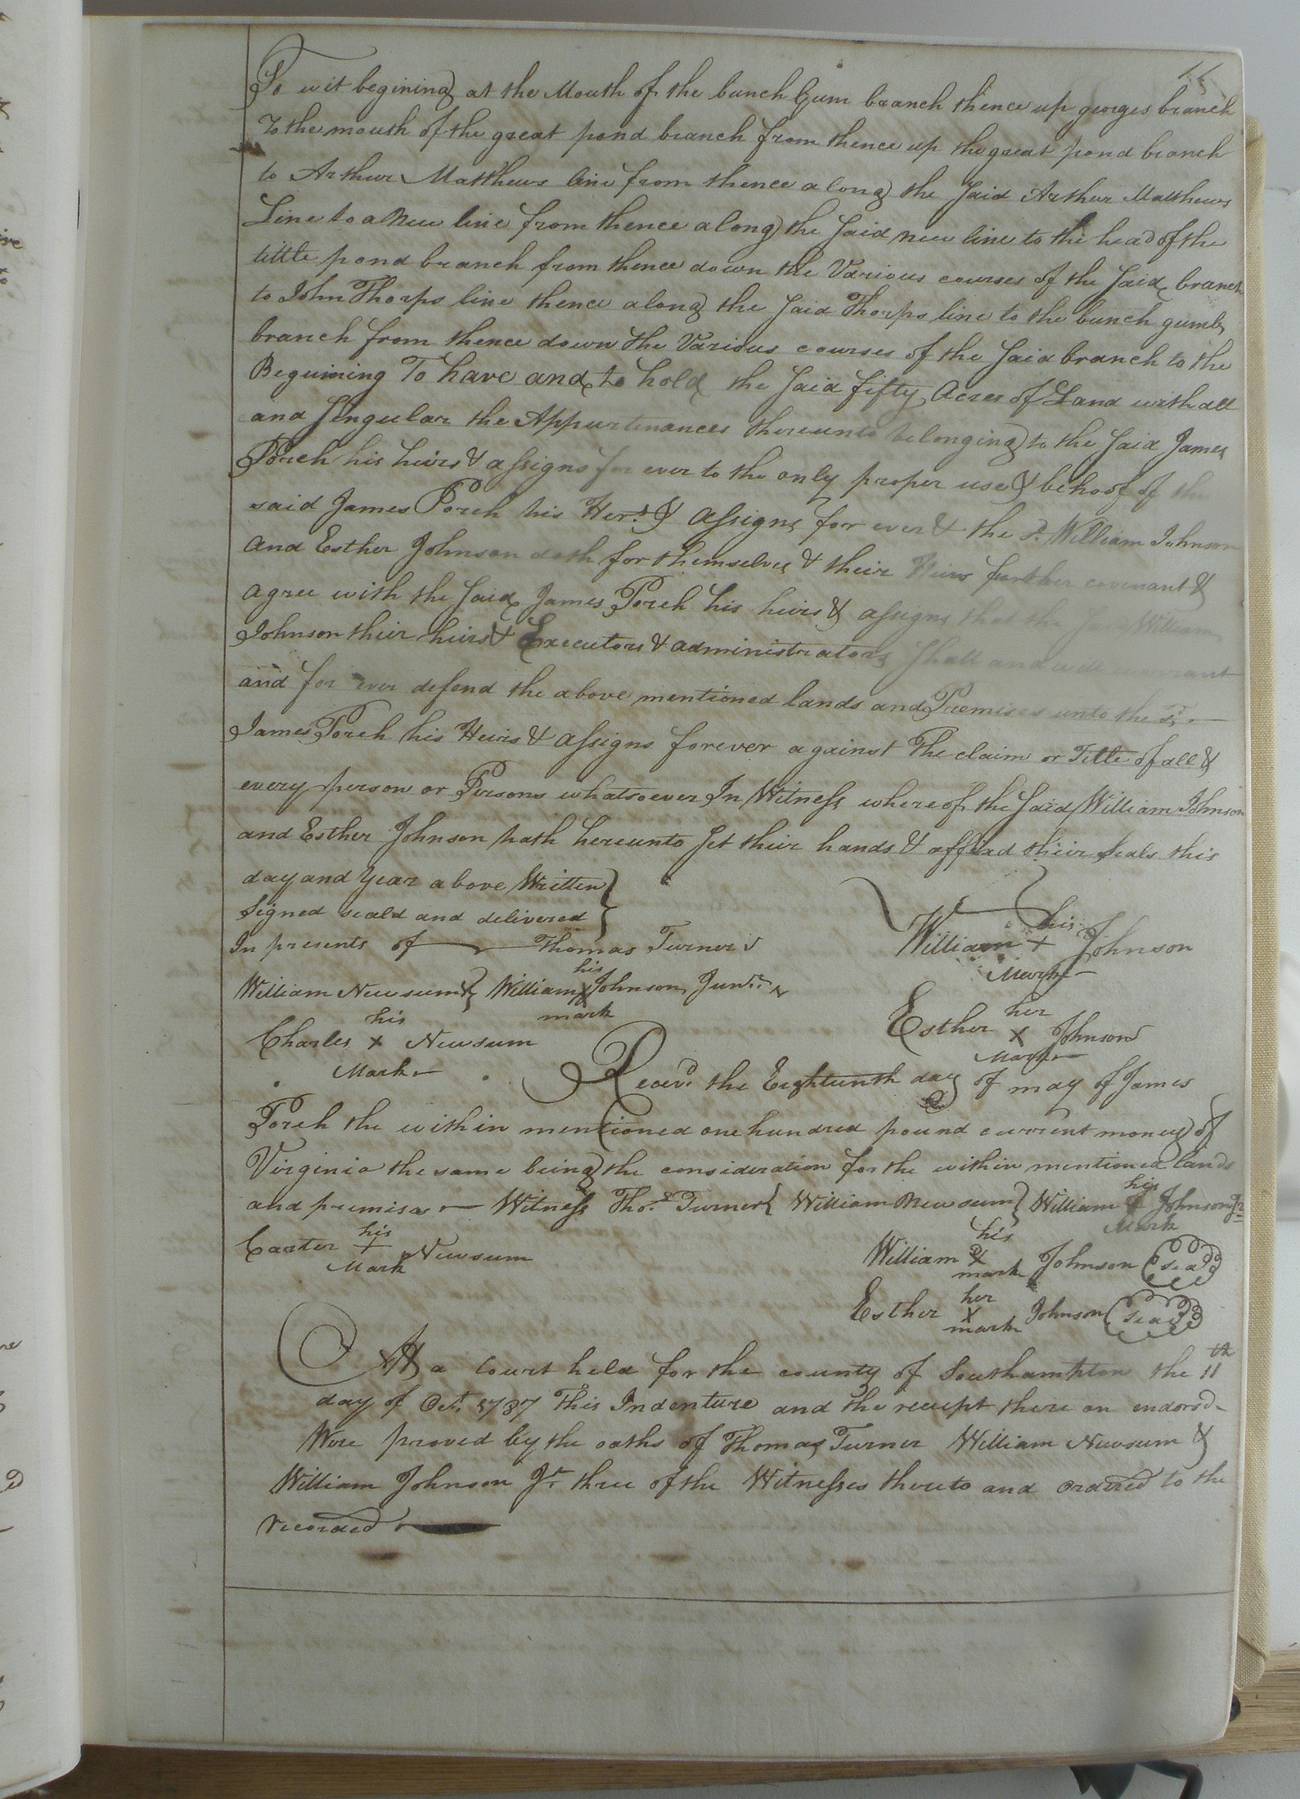 To wit begining at the Mouth of the bunch Gum branch thence up georges branch
To the mouth of the great pond branch from thence up the great pond branch
to Arthur Matthews line from thence along the Said Arthur Matthews
Line to a New line from thence along the Said new line to the head of the
little pond branch from thence down the Various courses of the Said branch
to John Thorps line thence along the Said Thorps line to the bunch gumb
branch from thence down the Various courses of the Said branch to the
Beguining To have and to hold the Said fifty Acres of Land with all
and Singular the Appurtenances thereunto belonging to the Said James
Porch his heirs & assigns for ever to the only proper use & behoof of the
said James Porch his Hers. & assigns for ever & the sd. William Johnson
and Esther Johnson doth for themselves & their Heirs further covenant &
agree with the Said James Porch his heirs & assigns that the Said William
Johnson their heirs & Executors & administrators Shall and will warrant
and for ever defend the above mentioned lands and Premises unto the sd.
James Porch his Heirs & assigns forever against The claim or Title of all &
every person or Persons whatsoever In Witness whereof the Said William Johnson
and Esther Johnson hath hereunto Set their hands & affixed their Seals this
day and Year above Written
Signed seald and delivered
In presents of Thomas Turner
William his + Mark Johnson
William Newsum William his X mark Johnson Junr.
Esther her X Mark Johnson
Charles his X Mark Newsum
Recevd. the Eighteenth day of may of James
Porch the within mentioned one hundred pound current money of
Virginia the same being the consideration for the within mentioned lands
and premises Witness Thos. Turner William Newsum William his + Mark Johnson Jr.
Carter his + Mark Newsum
William his X mark Johnson seal
Esther her X mark Johnson seal
At a Court held for the county of Southampton the 11th
day of Oct. 1787 This Indenture and the receipt there on endorsd
Were proved by the oaths of Thomas Turner William Newsum &
William Johnson Jr. three of the Witnesses thereto and ordered to the
recorded